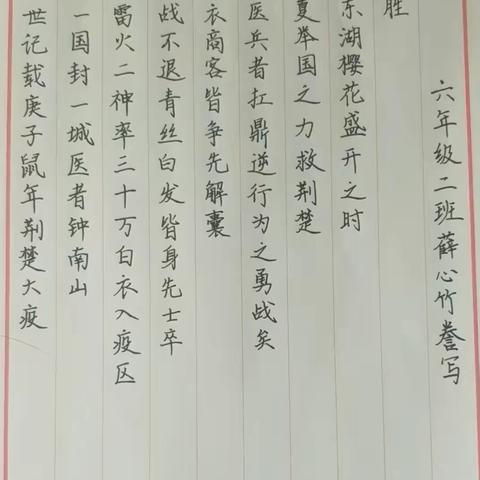 世记载庚子鼠年荆楚大疫
一国封一城医者钟南山
雷火二神率三十万白衣入疫区
战不退青丝白发皆身先士卒
衣商客皆争先解囊
医兵者扛鼎逆行为之勇战矣
夏举国之力救荆楚
东湖樱花盛开之时
胜
六年级二班薛心竹誊写